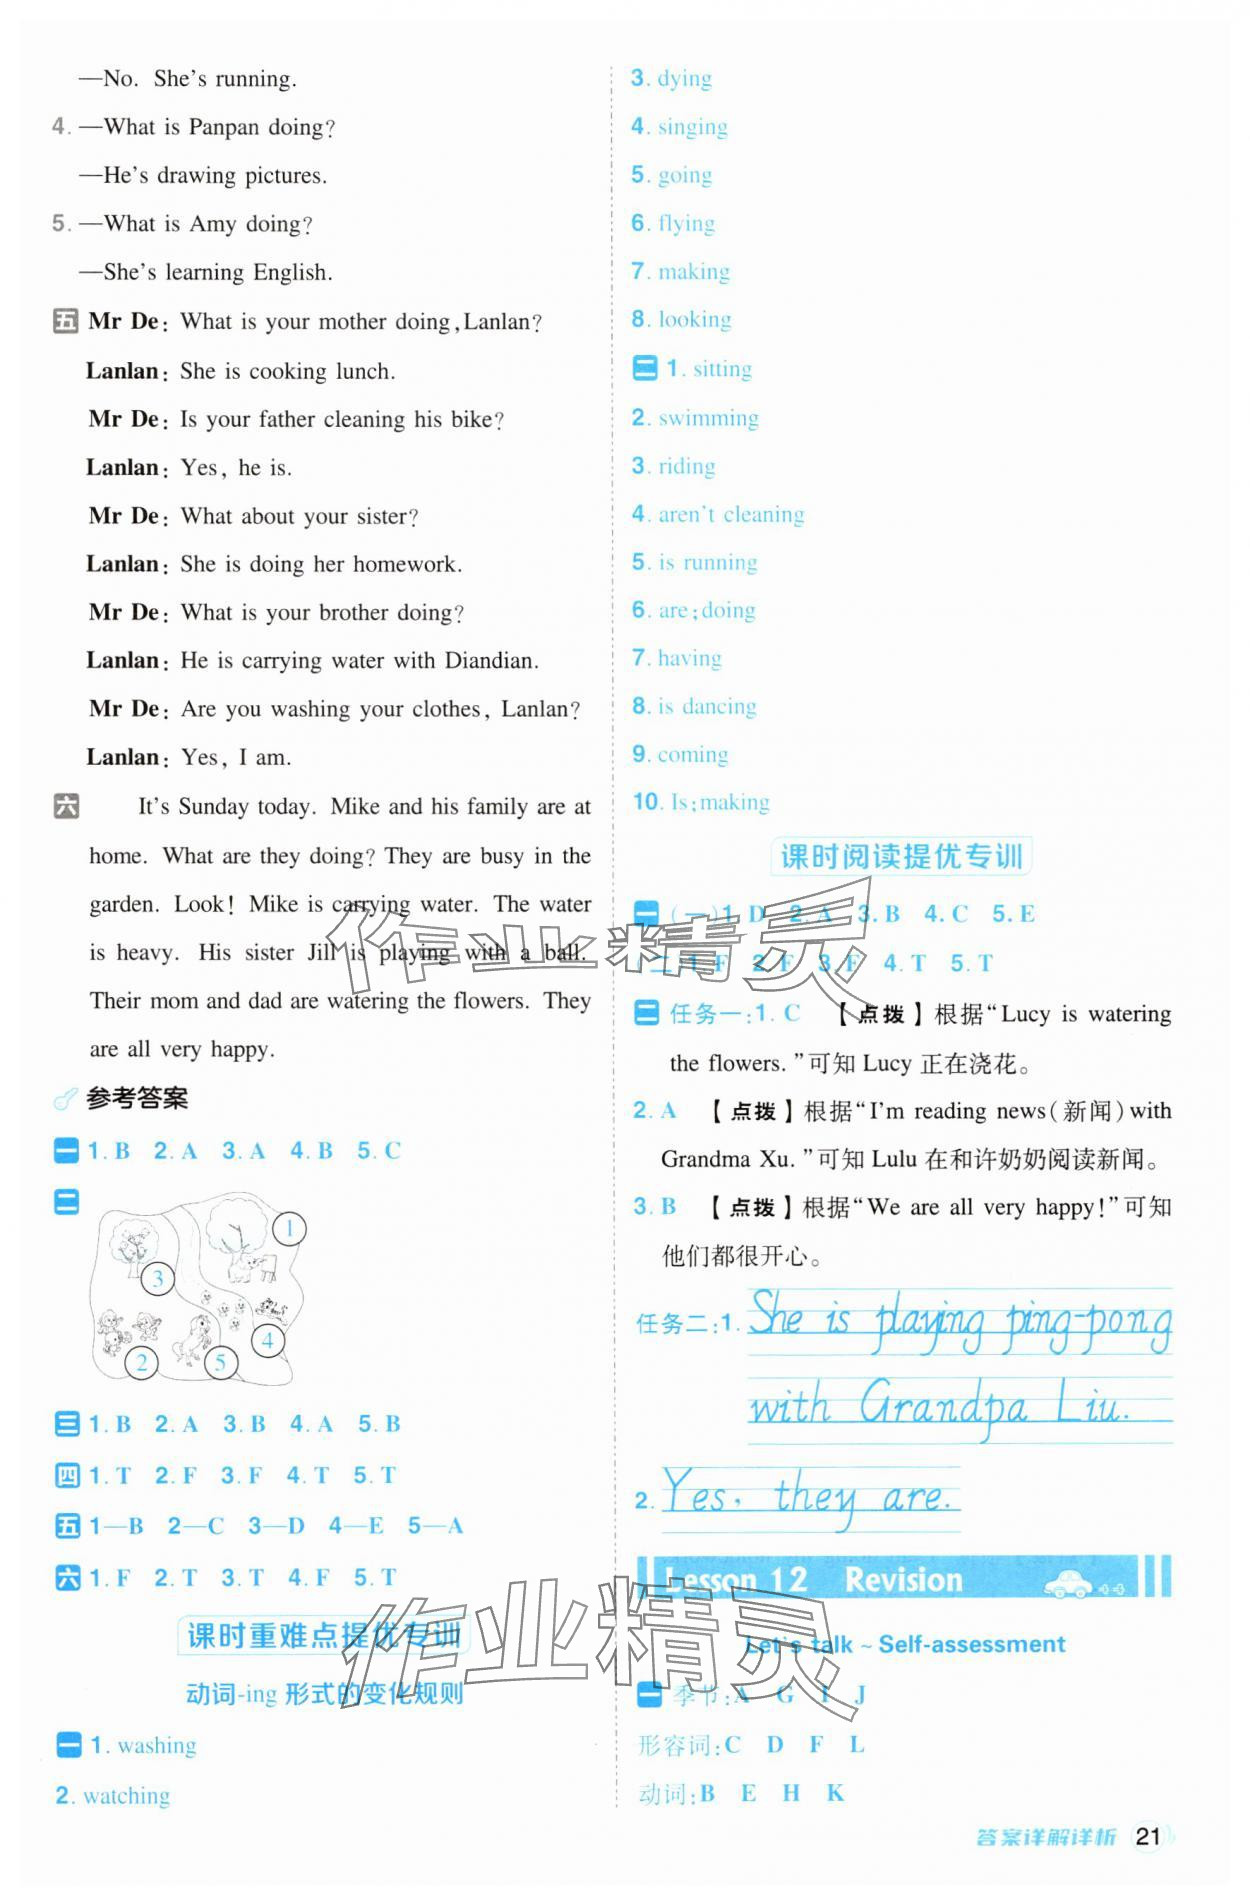 —No. She's running.
4. —What is Panpan doing?
—He's drawing pictures.
5. —What is Amy doing?
—She's learning English.
五 Mr De: What is your mother doing, Lanlan?
Lanlan: She is cooking lunch.
Mr De: Is your father cleaning his bike?
Lanlan: Yes, he is.
Mr De: What about your sister?
Lanlan: She is doing her homework.
Mr De: What is your brother doing?
Lanlan: He is carrying water with Diandian.
Mr De: Are you washing your clothes, Lanlan?
Lanlan: Yes, I am.
六 It's Sunday today. Mike and his family are at
home. What are they doing? They are busy in the
garden. Look! Mike is carrying water. The water
is heavy. His sister Jill is playing with a ball.
Their mom and dad are watering the flowers. They
are all very happy.
参考答案
一 1. B 2. A 3. A 4. B 5. C
二
1
3
4
2
5
三 1. B 2. A 3. B 4. A 5. B
四 1. T 2. F 3. F 4. T 5. T
五 1—B 2—C 3—D 4—E 5—A
六 1. F 2. T 3. T 4. F 5. T
课时重难点提优专训
动词-ing 形式的变化规则
一 1. washing
2. watching
3. dying
4. singing
5. going
6. flying
7. making
8. looking
二 1. sitting
2. swimming
3. riding
4. aren't cleaning
5. is running
6. are;doing
7. having
8. is dancing
9. coming
10. Is;making
课时阅读提优专训
一 (一)1. D 2. A 3. B 4. C 5. E
(二)1. F 2. F 3. F 4. T 5. T
二 任务一:1. C 【点拨】根据“Lucy is watering
the flowers.”可知 Lucy 正在浇花。
2. A 【点拨】根据“I'm reading news(新闻)with
Grandma Xu.”可知 Lulu 在和许奶奶阅读新闻。
3. B 【点拨】根据“We are all very happy!”可知
他们都很开心。
任务二:1. She is playing ping-pong
with Grandpa Liu.
2. Yes, they are.
Lesson 12 Revision
Let's talk ~ Self-assessment
一 季节:A G I J
形容词:C D F L
动词:B E H K
答案详解详析 21
作业精灵
作业精灵